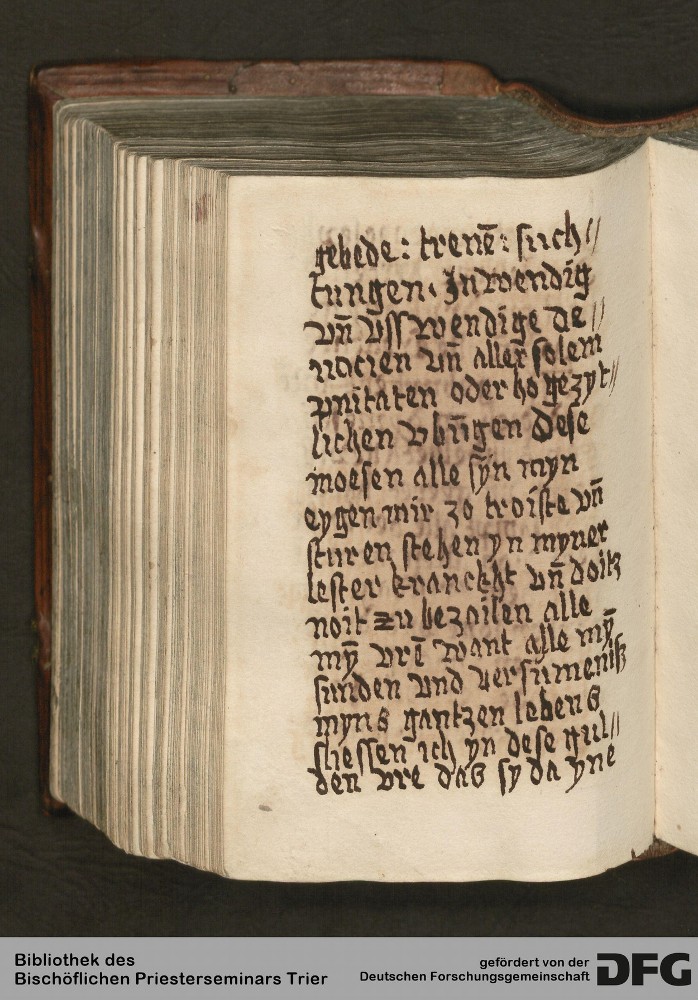 gebede: trenē: such//
tungen. Inwendig
vn̄ vsswendige de//
uocien vn̄ aller solem
pnitaten oder hogezyt//
lichen vbūgen dese
moesen alle syn myn
eygen mir zo troiste vn̄
sturen stehen yn myner
lester kranckht vn̄ doitz
noit zu bezailen alle
mȳ vrē want alle mȳ
sunden vnd versumeniß
myns gantzen lebens
sliessen ich yn dese gul//
den vre das sy da yne
Bibliothek des
Bischöflichen Priesterseminars Trier
gefördert von der
Deutschen Forschungsgemeinschaft
DFG